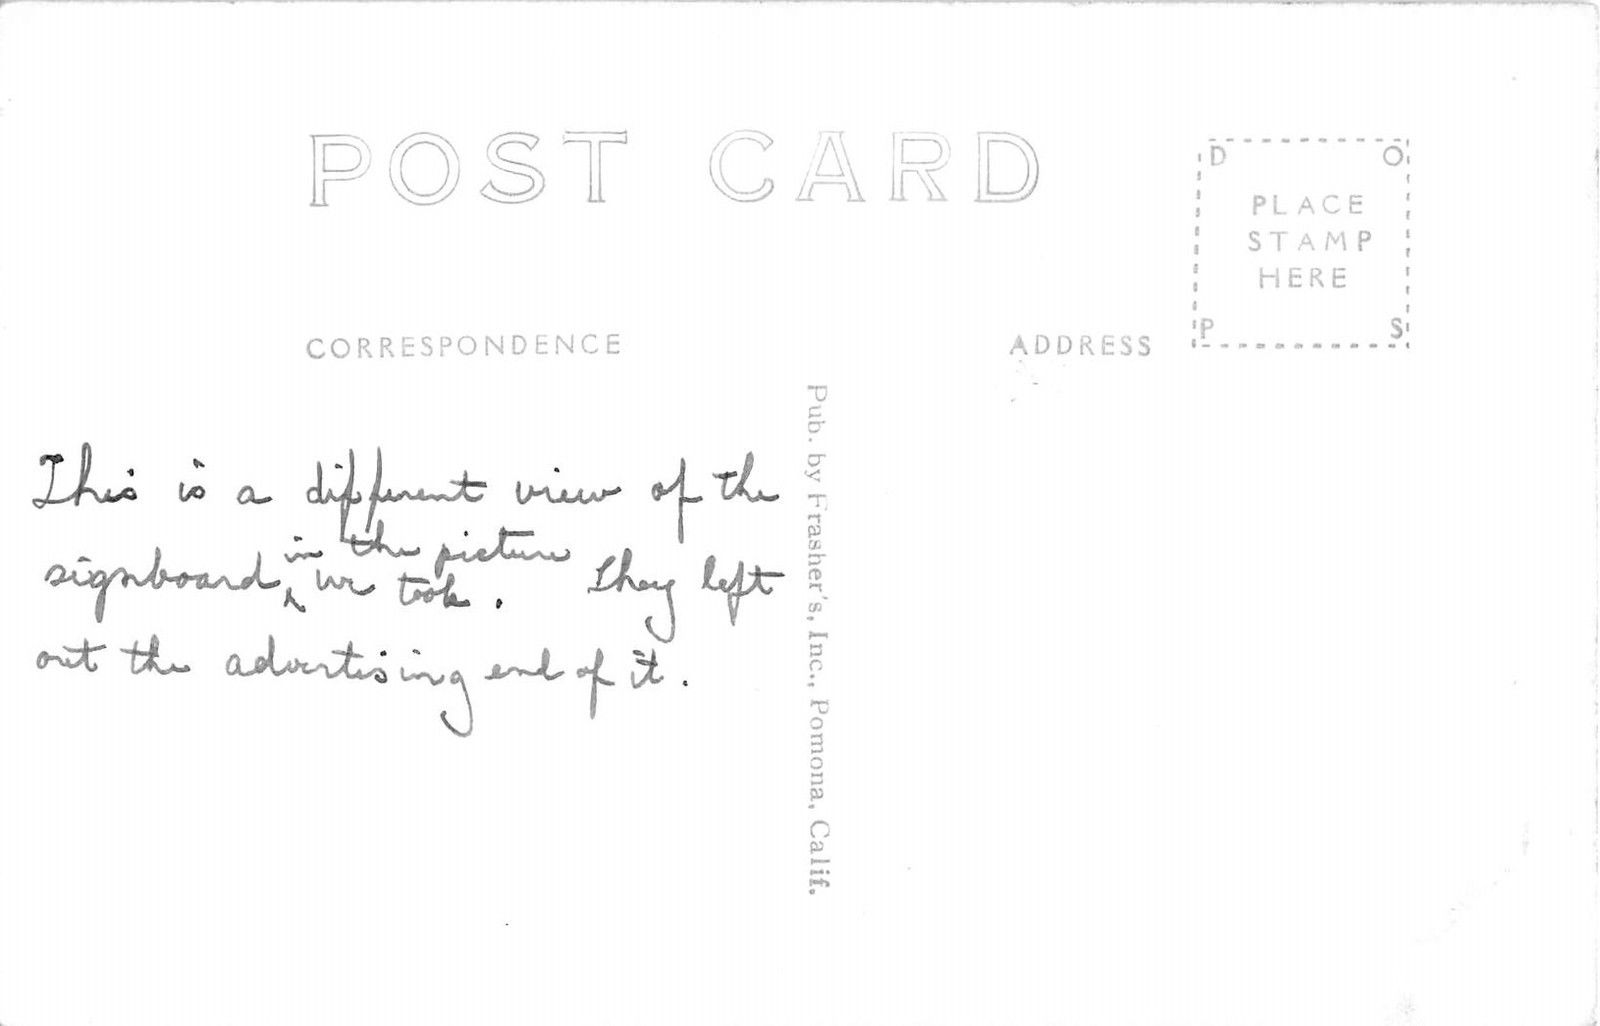 POST CARD
D O
PLACE
STAMP
HERE
P S
CORRESPONDENCE
ADDRESS
This is a different view of the
signboard ^ in the picture we took. They left
out the advertising end of it.
Pub. by Frasher's, Inc., Pomona, Calif.